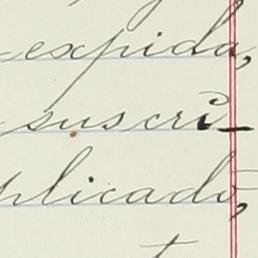 expida,
suscri-
plicado,